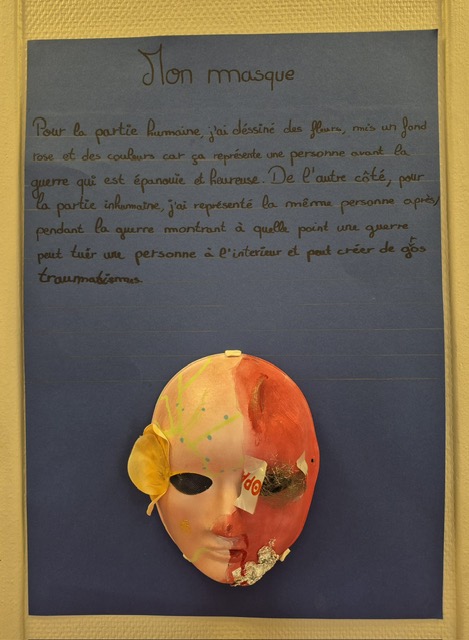 Mon masque
Pour la partie humaine, j'ai déssiné des fleurs, mis un fond
rose et des couleurs car ça représente une personne avant la
guerre qui est épanouie et heureuse. De l'autre côté, pour
la partie inhumaine, j'ai représenté la même personne après/
pendant la guerre montrant à quelle point une guerre
peut tuir une personne à l'interieur et peut créer de gros
traumatismes